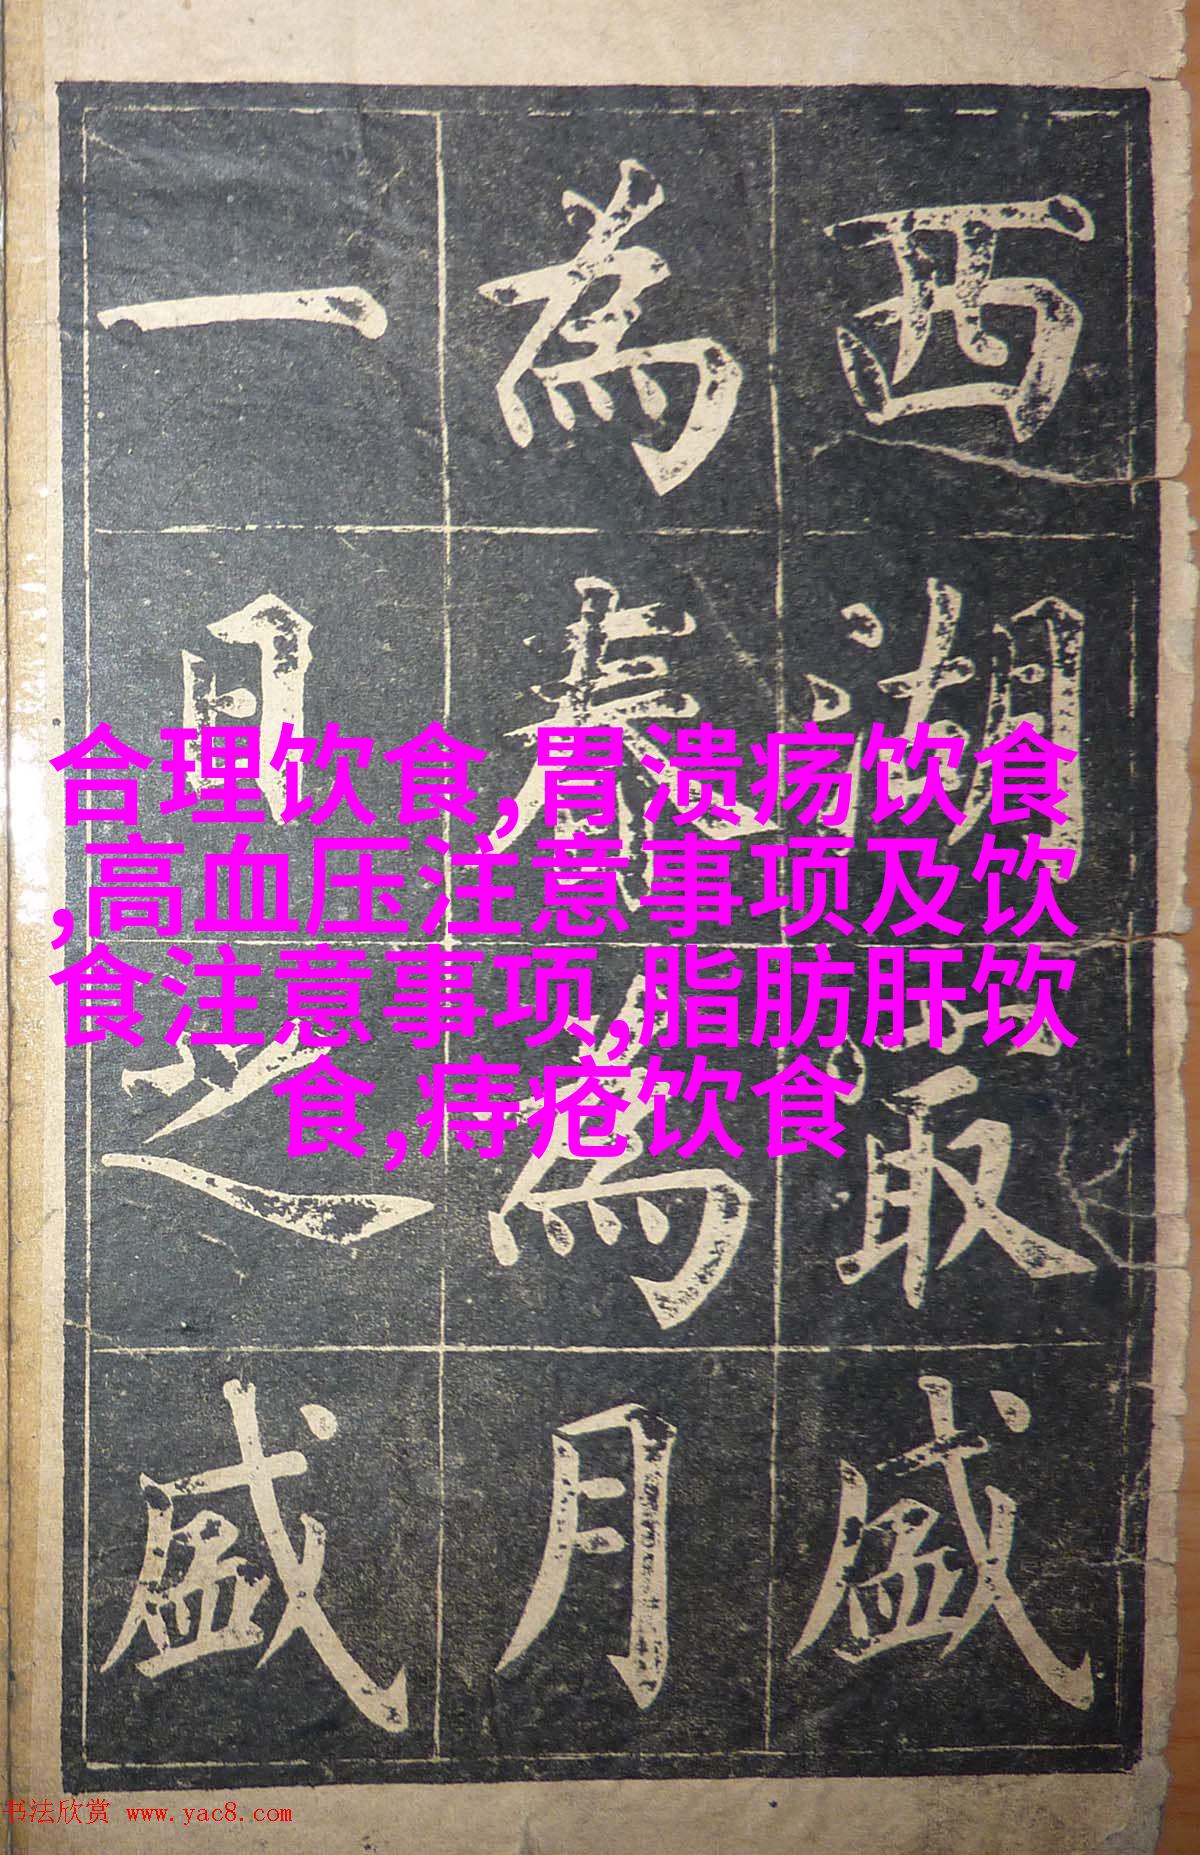 西湖最盛
為春為月
一日之盛
合理饮食,胃溃疡饮食
,高血压注意事项及饮
食注意事项,脂肪肝饮
食,痔疮饮食
书法欣赏 www.yac8.com